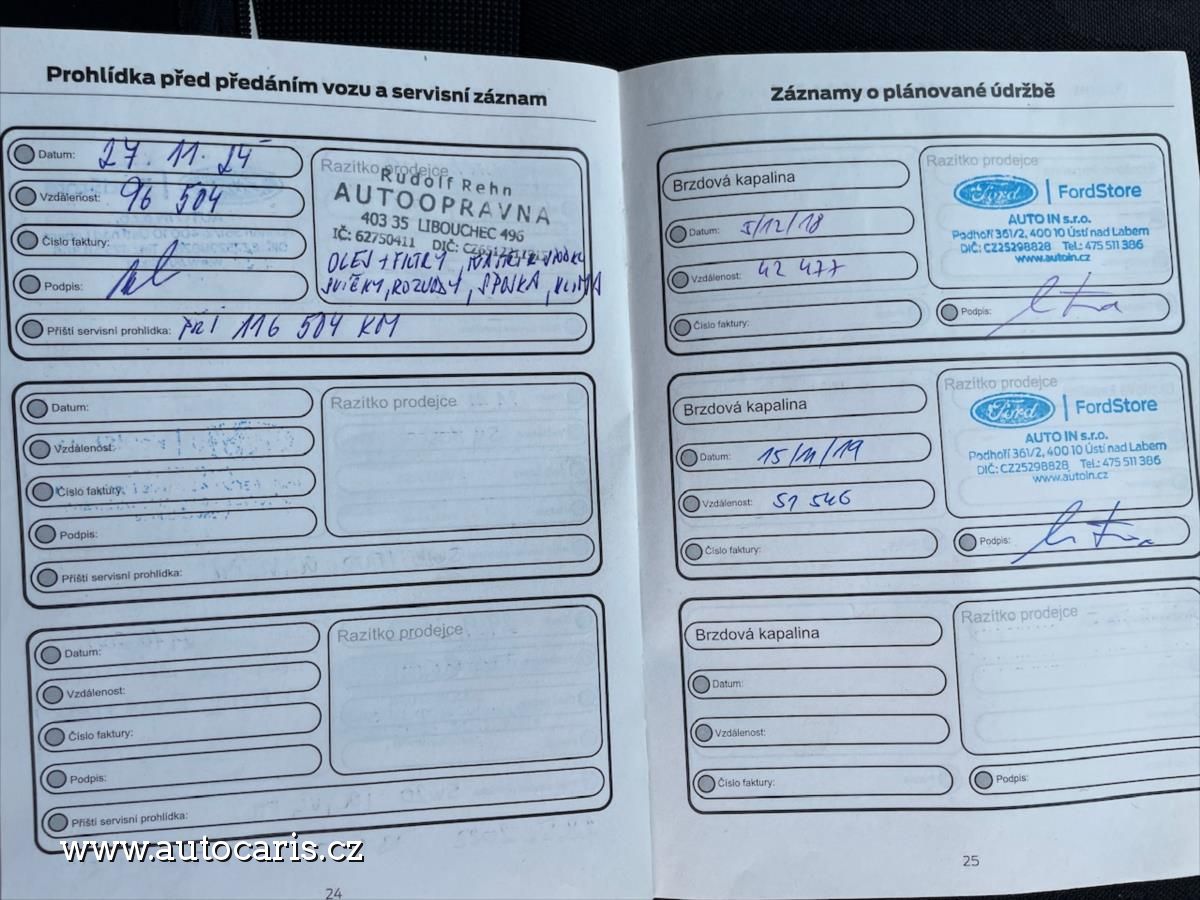 Prohlídka před předáním vozu a servisní záznam
Datum: 27. 11. 24
Vzdálenost: 96 504
Číslo faktury:
Podpis:
Příští servisní prohlídka: PŘI 116 504 KM
Razítko prodejce
Rudolf Rehn
AUTOOPRAVNA
403 35 LIBOUCHEC 496
IČ: 62750411 DIČ:
OLEJ + FILTRY,
SVÍČKY, ROZVODY, SPOJKA, KLIMA
Datum:
Vzdálenost:
Číslo faktury:
Podpis:
Příští servisní prohlídka:
Razítko prodejce
Datum:
Vzdálenost:
Číslo faktury:
Podpis:
Příští servisní prohlídka:
Razítko prodejce
www.autocaris.cz
24
Záznamy o plánované údržbě
Brzdová kapalina
Datum: 5/12/18
Vzdálenost: 42 477
Číslo faktury:
Razítko prodejce
Ford FordStore
AUTO IN s.r.o.
Podhoří 361/2, 400 10 Ústí nad Labem
DIČ: CZ25298828 Tel.: 475 511 386
www.autoin.cz
Podpis:
Brzdová kapalina
Datum: 15/11/19
Vzdálenost: 51 546
Číslo faktury:
Razítko prodejce
Ford FordStore
AUTO IN s.r.o.
Podhoří 361/2, 400 10 Ústí nad Labem
DIČ: CZ25298828 Tel.: 475 511 386
www.autoin.cz
Podpis:
Brzdová kapalina
Datum:
Vzdálenost:
Číslo faktury:
Razítko prodejce
Podpis:
25